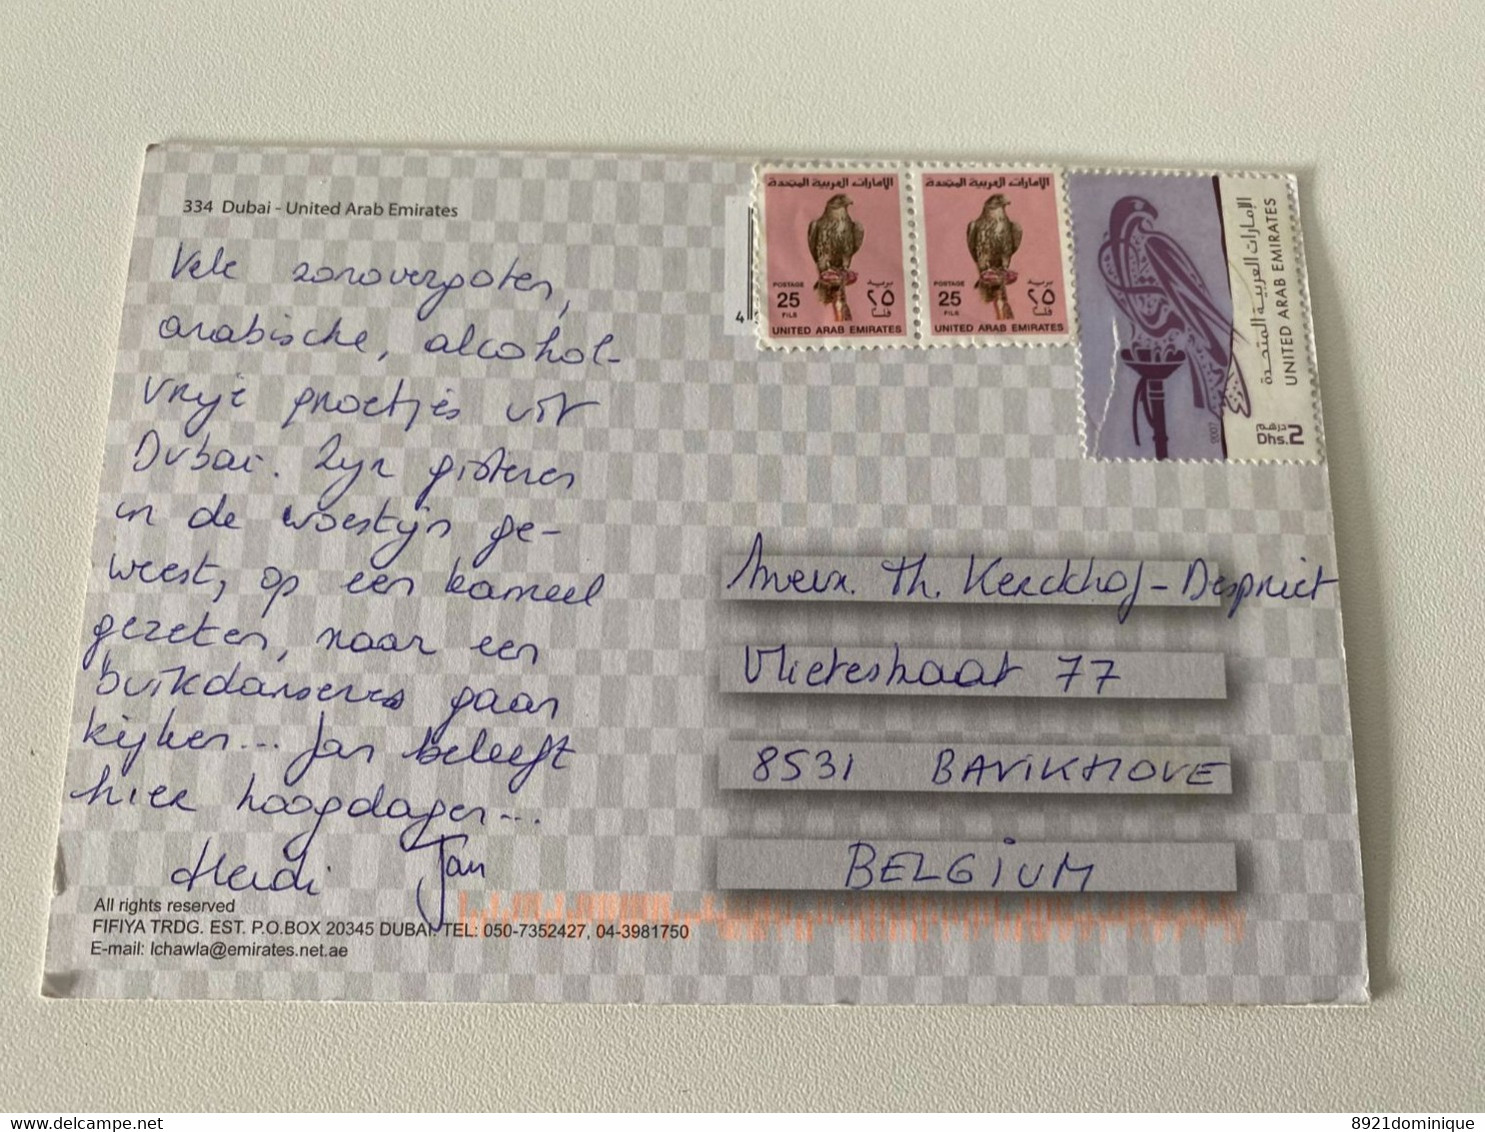 334 Dubai - United Arab Emirates
Vele zonovergoten,
arabische, alcohol-
vrije groetjes uit
Dubai. Zijn gisteren
in de woestijn ge-
weest, op een kameel
gezeten, naar een
buikdanseres gaan
kijken... Jan beleeft
hier hoogdagen...
Heidi Jan
All rights reserved
FIFIYA TRDG. EST. P.O.BOX 20345 DUBAI. TEL: 050-7352427, 04-3981750
E-mail: lchawla@emirates.net.ae
4
الإمارات العربية المتحدة
POSTAGE بريد
25 ٢٥
FILS فلسا
UNITED ARAB EMIRATES
الإمارات العربية المتحدة
POSTAGE بريد
25 ٢٥
FILS فلسا
UNITED ARAB EMIRATES
الإمارات العربية المتحدة
UNITED ARAB EMIRATES
2007
درهم
Dhs.2
Th. Kerckhof - Despriet
Vlietestraat 77
8531 BAVIKHOVE
BELGIUM
8921dominique